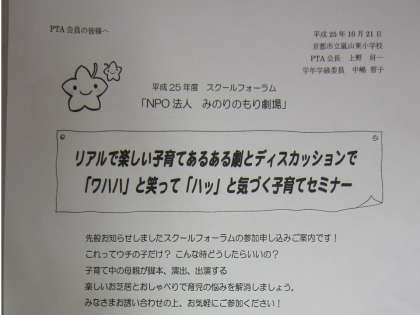 PTA会員の皆様へ
平成25年10月21日
京都市立嵐山東小学校
PTA会長 上野
学年学級委員 中嶋
平成25年度 スクールフォーラム
「NPO法人 みのりのもり劇場」
リアルで楽しい子育てあるある劇とディスカッションで
「ワハハ」と笑って「ハッ」と気づく子育てセミナー
先般お知らせしましたスクールフォーラムの参加申し込みご案内です！
これってウチの子だけ？こんな時どうしたらいいの？
子育て中の母親が脚本、演出、出演する
楽しいお芝居とおしゃべりで育児の悩みを解消しましょう。
みなさまお誘い合わせの上、お気軽にご参加ください！